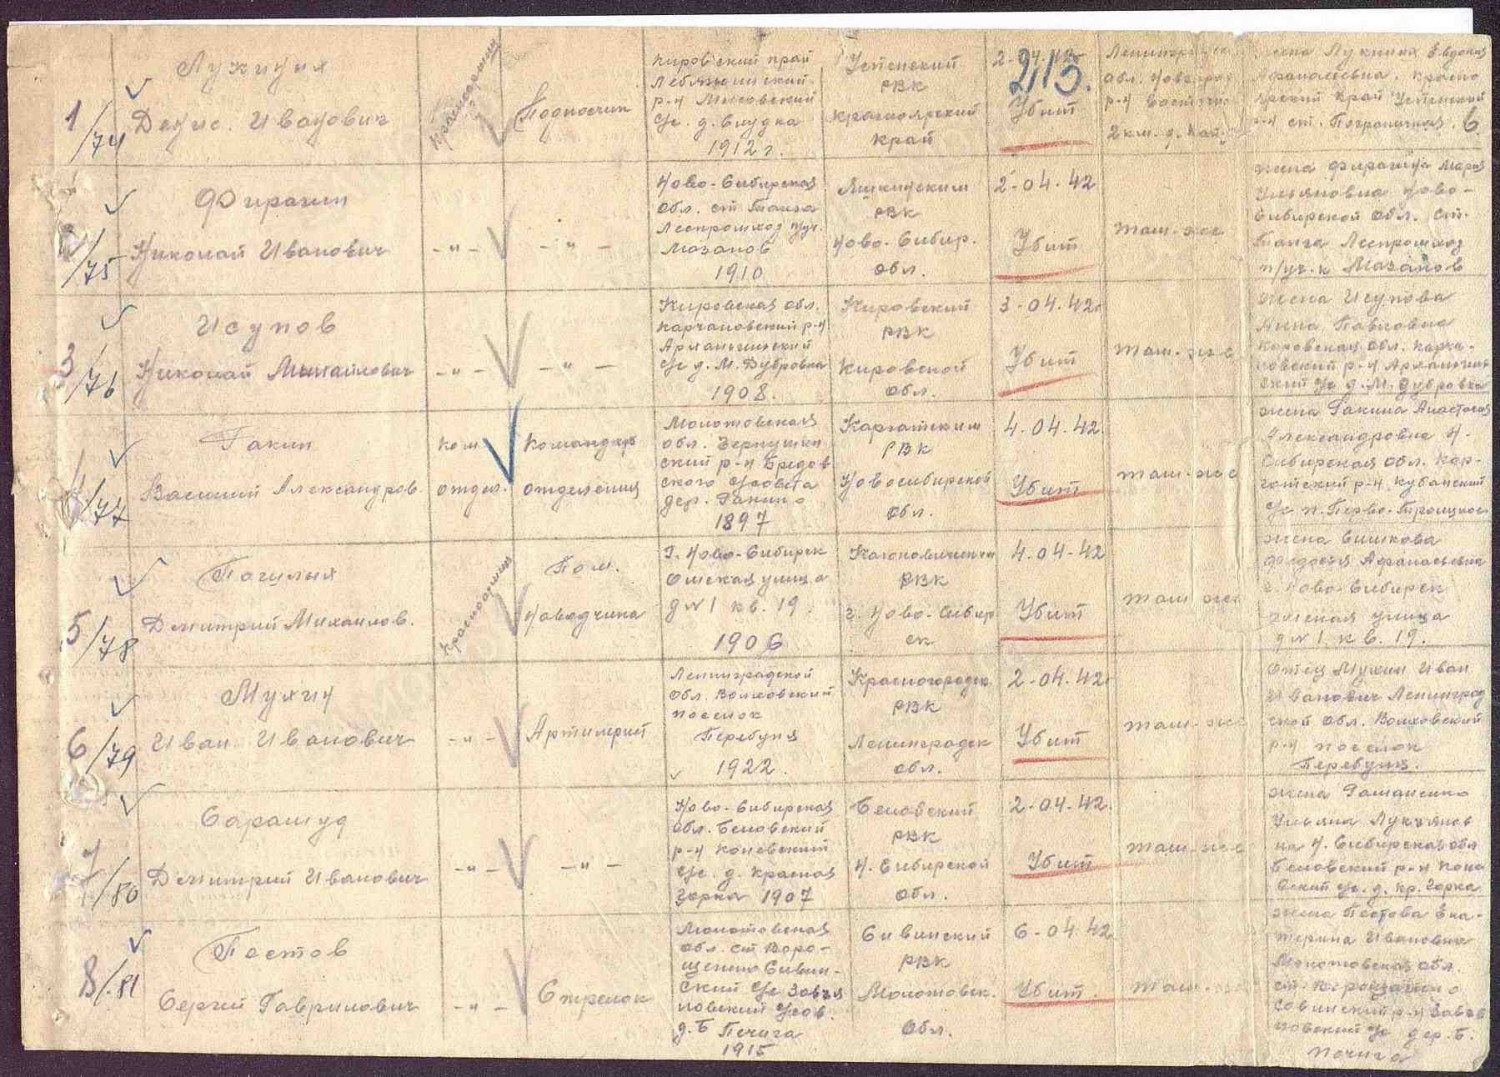 1/74
Лукиных
Денис. Иванович
Красноармеец
Подносчик
Кировский край
Лебяжинский
р-н Мысовский
с/с. д. Слудка
1912 г.
Успенский
РВК
Красноярский
край
2-04-42
2113
Убит
Ленинградск
обл. Новгород
р-н
2 км. д.
жена Лукиных Евдокия
Афанасьевна. Красно
ярский край Успенский
р-н ст. Пограничная. 6
2/75
Фирагин
Николай Иванович
-"-
-"-
Ново-Сибирская
обл. ст. Тайга
Леспромхоз п/уч.
Мазалов
1910
РВК
Ново-Сибир.
обл.
2-04-42
Убит
там-же
жена Фирагина Мария
Ульяновна Ново-
Сибирской обл. ст.
Тайга Леспромхоз
п/уч-к Мазалов
3/76
Исупов
Николай Михайлович
-"-
-"-
Кировская обл.
р-н
с/с д. М. Дубровка
1908.
Кировский
РВК
Кировской
обл.
3-04-42г
Убит
там-же
жена Исупова
Анна Павловна
Кировская обл.
с/с д. М. Дубровка
4/77
Гакин
Василий Александров.
ком.
отдел.
Командир
отделения
Молотовская
обл. Чернушин
ский р-н Бродов
ского с/совета
дер. Гакино
1897
Каргатским
РВК
Новосибирской
обл.
4-04-42
Убит
там-же
жена Гакина Анастасия
Александровна Н.
Сибирская обл. Кар-
гатский р-н Кубанский
с/с п. Перво-Троицкое
5/78
Погулых
Дмитрий Михайлов.
Красноармеец
Пом.
Наводчика
г. Ново-Сибирск
Омская улица
д № 1 кв. 19.
1906
РВК
г. Ново-Сибир
ск
4-04-42
Убит
там-же
жена Сишкова
Федосия Афанасьевна
г. Ново-Сибирск
Омская улица
д № 1. кв. 19.
6/79
Мухин
Иван Иванович
-"-
Артилерий
Ленинградской
обл. Волховский
поселок
1922.
РВК
Ленинградск
обл.
2-04-42
Убит
там-же
отец Мухин Иван
Иванович Ленинград
ской обл. Волховский
р-н поселок
7/80
Сарамуд
Дмитрий Иванович
-"-
-"-
Ново-Сибирская
обл. Беловский
р-н Коневский
с/с. д. Красная
Горка 1907
Беловский
РВК
Н. Сибирской
обл.
2-04-42.
Убит
там-же
жена
Ульяна Лукьянов
на Н. Сибирская обл
Беловский р-н Коне
вский с/с. д. Кр. Горка
8/81
Постов
Сергей Гаврилович
-"-
Стрелок
Молотовская
обл. ст. Воро-
шилово Сивин-
ский
д. Б
1915
Сивинский
РВК
Молотовск.
обл.
6-04 42
Убит.
там-же
жена Постова Ека-
терина Ивановна
Молотовская обл.
ст. Ворошилово
Сивинский р-н
дер. Б.